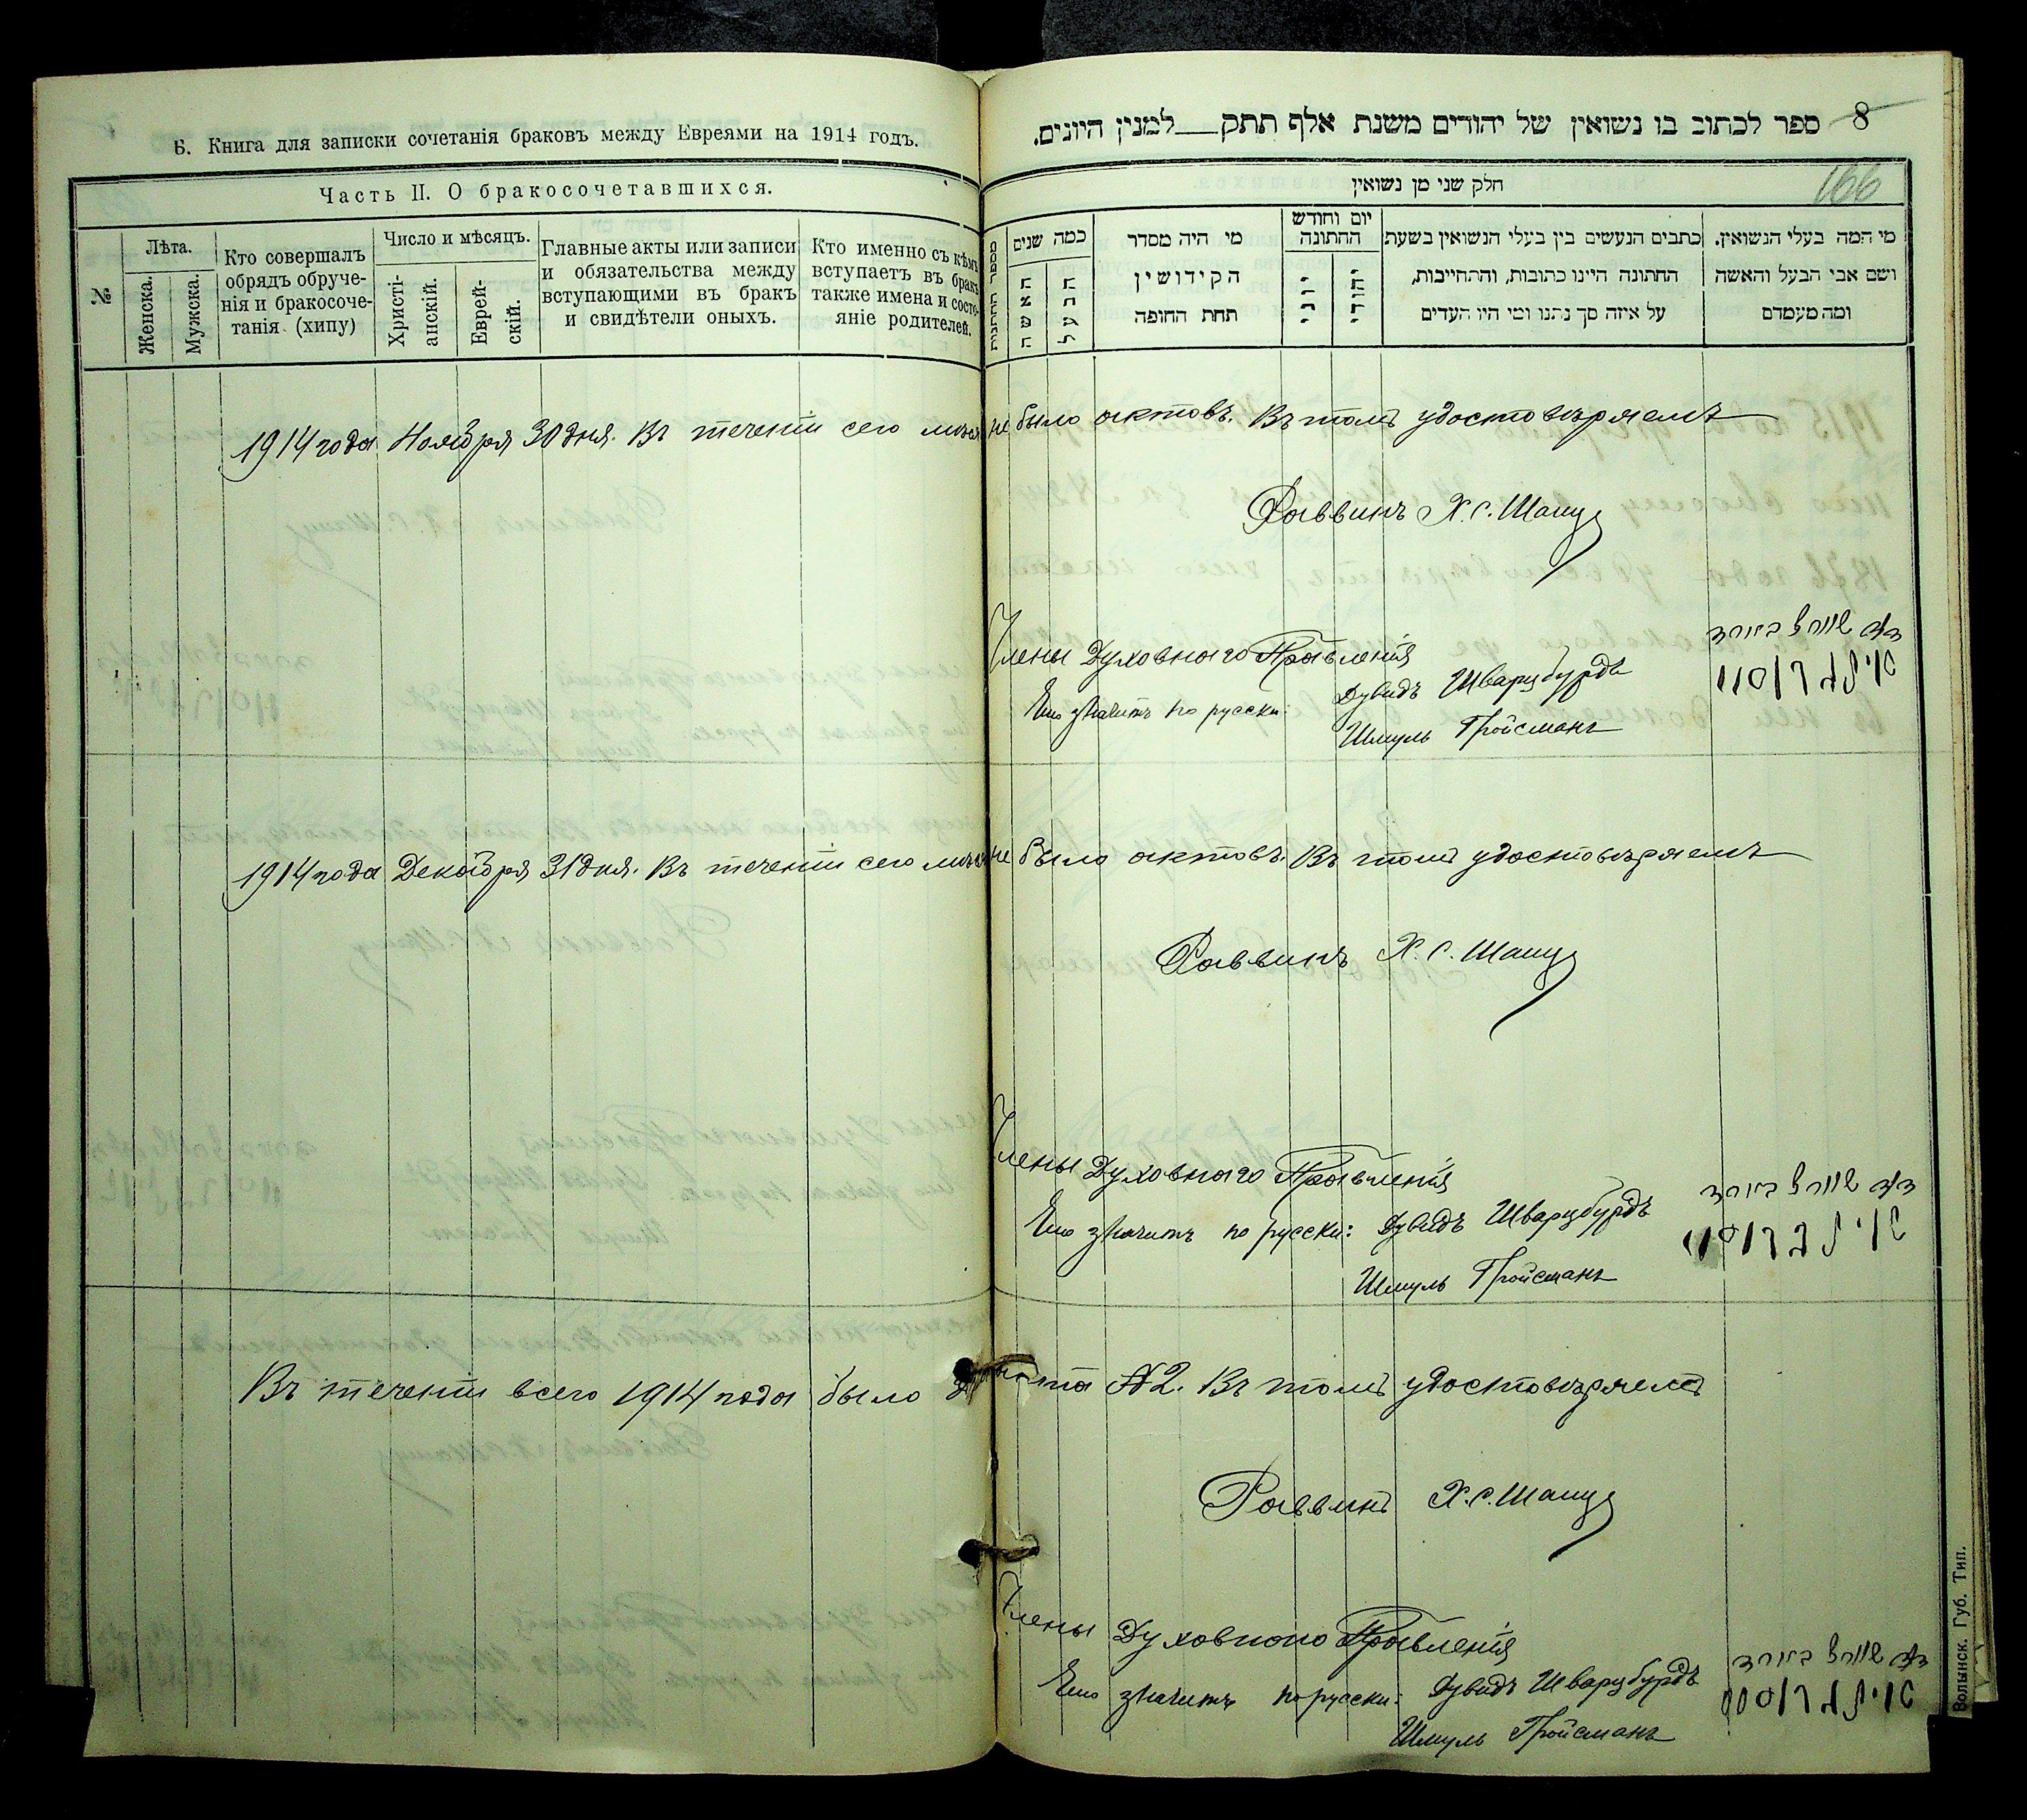 Б. Книга для записки сочетанія браковъ между Евреями на 1914 годъ.
Часть II. О бракосочетавшихся.
№
Лѣта.
Женска.
Мужска.
Кто совершалъ
обрядъ обруче-
нія и бракосоче-
танія (хипу)
Число и мѣсяцъ.
Христі-
анскій.
Еврей-
скій.
Главные акты или записи
и обязательства между
вступающими въ бракъ
и свидѣтели оныхъ.
Кто именно съ кѣмъ
вступаетъ въ бракъ
также имена и состо-
яніе родителей.
8 ספר לכתוב בו נשואין של יהודים משנת אלף תתק למנין היונים.
166
חלק שני מן נשואין
מספר החתנות
כמה שנים
האשה
הבעל
מי היה מסדר
הקידושין
תחת החופה
יום וחודש
החתונה
יוני
יהודי
כתבים הנעשים בין בעלי הנשואין בשעת
החתונה היינו כתובות, והתחייבות,
על איזה סך נתנו ומי היו העדים
מי המה בעלי הנשואין.
ושם אבי הבעל והאשה
ומה מעמדם
1914 года Ноября 30 дня. Въ теченіи сего не было актовъ. Въ томъ удостовѣряемъ
Раввинъ Х. С.
Члены Духовнаго Правленія
Еио значитъ по русски: Дувидъ Шварцбурдъ
Шмуль Гройсманъ
1914 года Декабря 31 дня. Въ теченіи сего не было актовъ. Въ томъ удостовѣряемъ
Раввинъ Х. С.
Члены Духовнаго Правленія
Еио значитъ по русски: Дувидъ Шварцбурдъ
Шмуль Гройсманъ
Въ теченіи всего 1914 года было №2. Въ томъ удостовѣряемъ
Раввинъ Х. С.
Члены Духовнаго Правленія
Еио значитъ по русски: Дувидъ Шварцбурдъ
Шмуль Гройсманъ
Волынск. Губ. Тип.